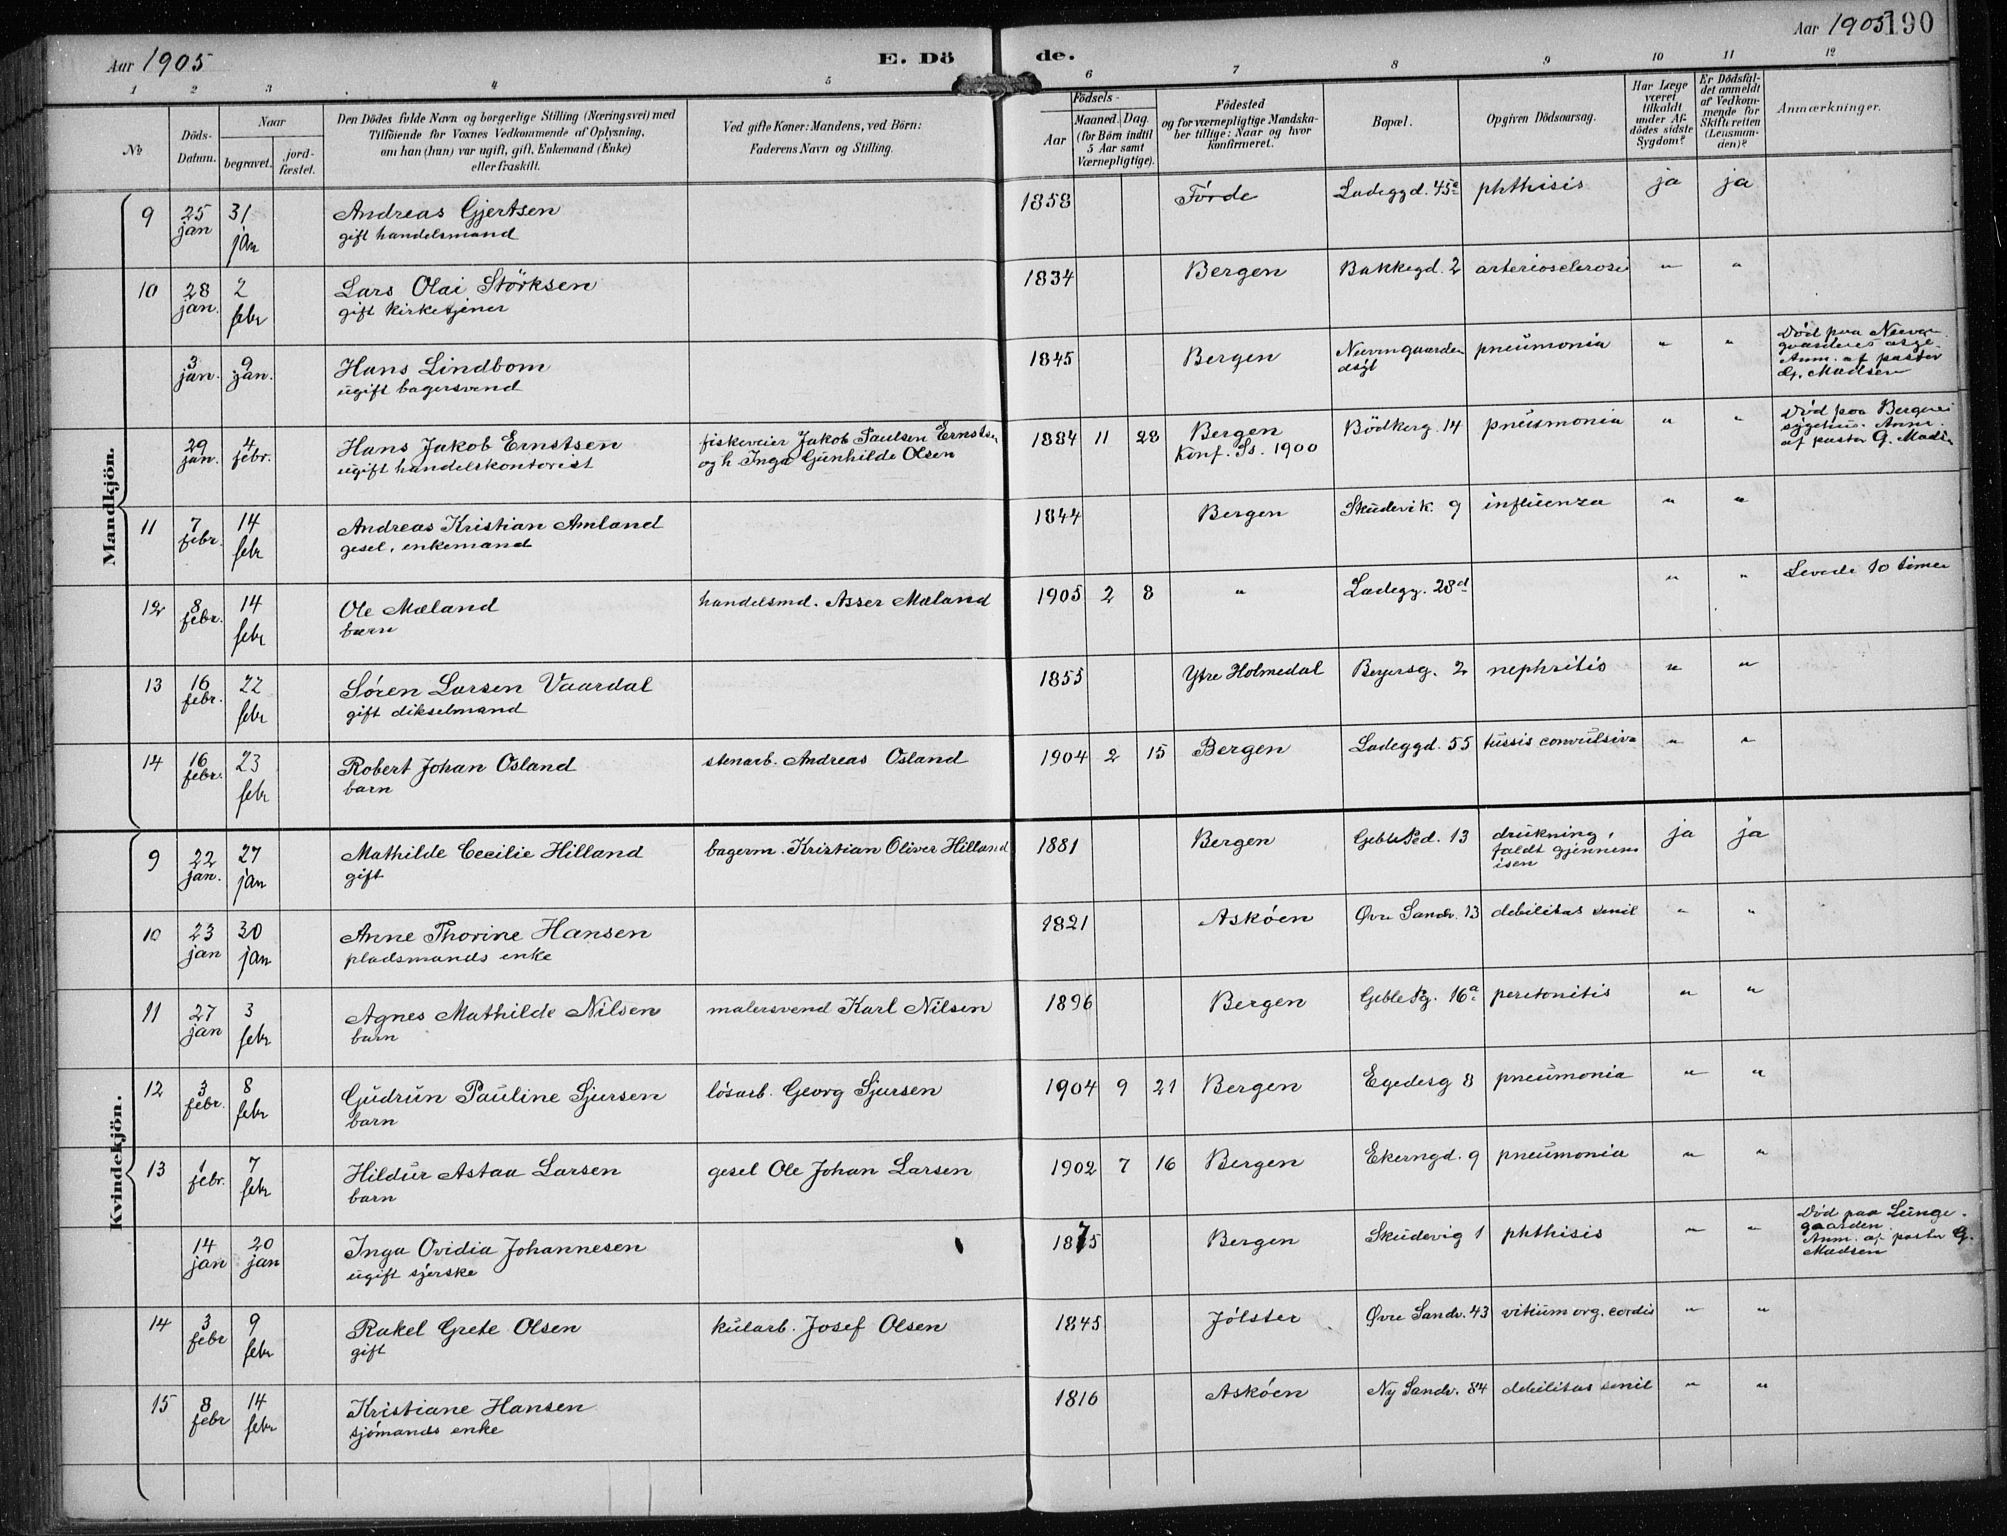 Aar 1905 E. Döde. Aar 1905 190
1 2 3 4 5 6 7 8 9 10 11 12
№ Döds-Datum. Naar begravet. jord-fæstet.
Den Dödes fulde Navn og borgerlige Stilling (Næringsvei) med
Tilföiende for Voxnes Vedkommende af Oplysning,
om han (hun) var ugift, gift, Enkemand (Enke)
eller fraskilt.
Ved gifte Koner: Mandens, ved Börn:
Faderens Navn og Stilling.
Födsels-
Aar Maaned. Dag.
(for Börn indtil
5 Aar samt
Værnepligtige).
Födested
og for værnepligtige Mandska-
ber tillige: Naar og hvor
konfirmeret.
Bopæl.
Opgiven Dödsaarsag.
Har Læge
været
tilkaldt
under Af-
dödes sidste
Sygdom?
Er Dödsfal-
det anmeldt
af Vedkom-
mende for
Skifteretten
(Lensman-
den)?
Anmærkninger.
Mandkjön.
9 25 jan 31 jan Andreas Gjertsen 1858 Förde Ladeggd. 45a phthisis ja ja
gift handelsmand
10 28 jan. 2 febr Lars Olai Störksen 1834 Bergen Bakkegd. 2 arteriosclerosi " "
gift kirketjener
3 jan. 9 jan. Hans Lindbom 1845 Bergen pneumonia " "
ugift bagersvend
Anm. af pastor
G. Madsen
29 jan. 4 febr. Hans Jakob Ernstsen fiskeveier Jakob Paulsen Ernstsen 1884 11 28 Bergen Bödkerg. 14 pneumonia " " Död paa Bergens
ugift handelskontorist og h Inga Gunhilde Olsen Konf. Is. 1900 sygehus. Anm.
af pastor G. Madsen
11 7 febr. 14 febr Andreas Kristian Amland 1844 Bergen Skudevik. 9 influenza " "
gesel, enkemand
12 8 febr. 14 febr Ole Mæland handelsmd. Asser Mæland 1905 2 8 " Ladegg. 28d " " Levede 10 timer
barn
13 16 febr. 22 febr Søren Larsen Vaardal 1855 Ytre Holmedal Beyersg. 2 nephritis " "
gift dikselmand
14 16 febr. 23 febr Robert Johan Osland stenarb. Andreas Osland 1904 2 15 Bergen Ladeggd. 55 tussis convulsiva " "
barn
Kvindekjön.
9 22 jan. 27 jan Mathilde Cecilie Hilland bagerm. Kristian Oliver Hilland 1881 Bergen Geble Ped. 13 drukning, ja ja
gift faldt gjennem
isen
10 23 jan 30 jan Anne Thorine Hansen 1821 Asköen Øvre Sandv. 13 debilitas senil " "
pladsmands enke
11 27 jan 3 febr Agnes Mathilde Nilsen malersvend Karl Nilsen 1896 Bergen Geble Pg. 16a peritonitis " "
barn
12 3 febr. 8 febr Gudrun Pauline Sjursen lösarb. Georg Sjursen 1904 9 21 Bergen Egedesg 8 pneumonia " "
barn
13 1 febr. 7 febr Hildur Astaa Larsen gesel Ole Johan Larsen 1902 7 16 Bergen Ekerngd. 9 pneumonia " "
barn
14 jan 20 jan Inga Ovidia Johannesen 1875 Bergen Skudevig 1 phthisis " " Död paa Lunge-
ugift sjerske gaarden.
Anm. af pastor G.
Madsen
14 3 febr 9 febr Rakel Grete Olsen kularb. Josef Olsen 1845 Jölster Øvre Sandv. 43 vitium org. cordis " "
gift
15 8 febr 14 febr Kristiane Hansen 1816 Asköen Ny Sandv. 84 debilitas senil " "
sjömands enke